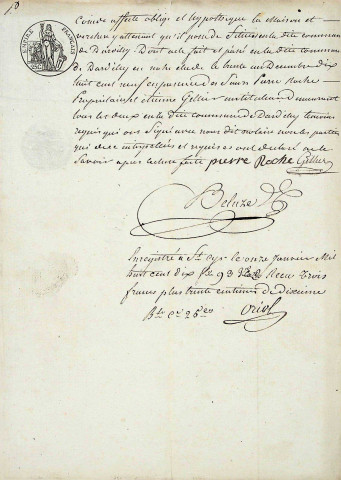 EMPIRE FRANÇAIS
Comme affecte oblige et hypothèque la Maison et
verchere y attenant qu'il possède Située en la dite commune
de Dardilly. Dont acte fait et passé en la dite commune
de Dardilly en notre étude le trente un Décembre dix
huit cent neuf en présence des Sieurs Pierre Roche
Propriétaire et Etienne Gellier instituteur demeurant
tous les deux en la dite commune de Dardilly témoins
requis qui ont Signé avec nous dit notaire non les parties
qui de ce interpellées et requises ont déclaré ne le
Savoir après lecture faite pierre Roche Gellier
Beluze
Enregistré à St. Cyr le onze Janvier Mil
huit cent dix fo. 93 Reçu Trois
francs plus trente centimes de dixième